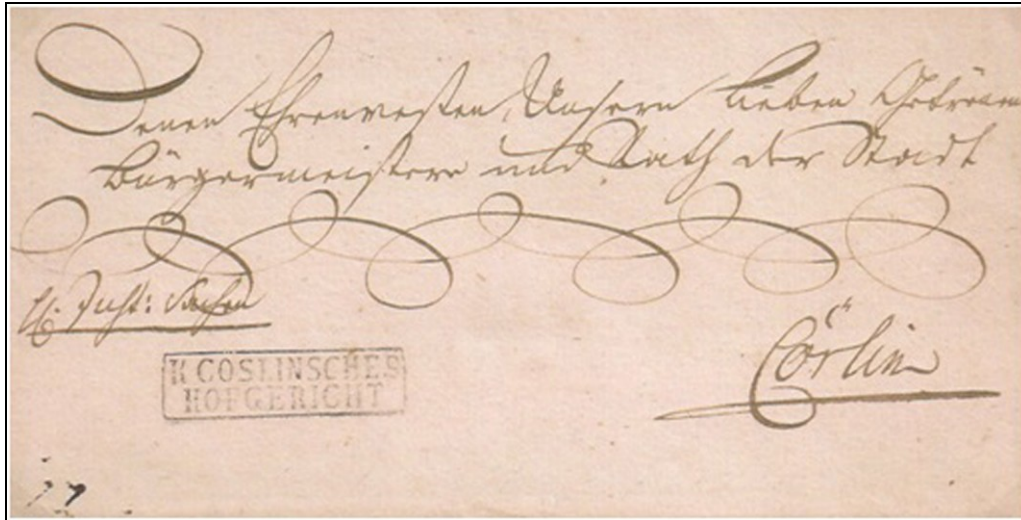 Denen Ehrenvesten, Unsern lieben Getreüen
Bürgermeistern und Rath der Stadt
Just: Sachen
Cörlin
K COSLINSCHES
HOFGERICHT